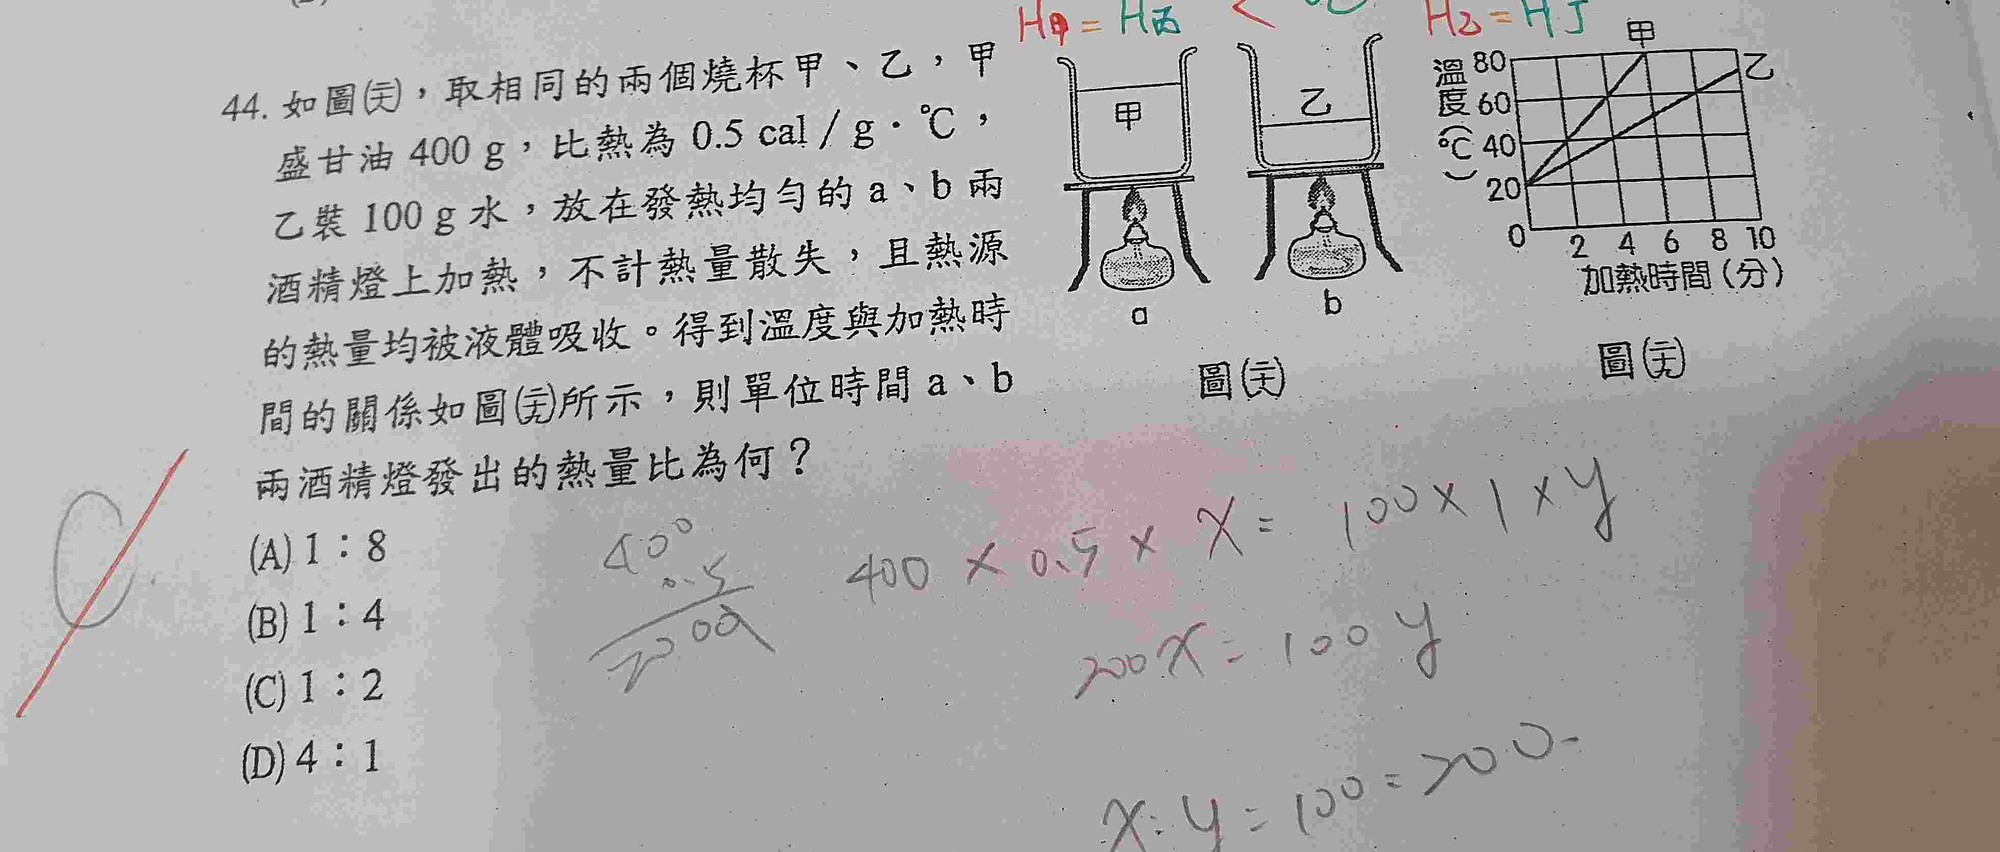 H甲 = H丙 <
H乙 = H丁
44. 如圖(天),取相同的兩個燒杯甲、乙,甲
盛甘油 400 g,比熱為 0.5 cal / g·℃,
乙裝 100 g 水,放在發熱均勻的 a、b 兩
酒精燈上加熱,不計熱量散失,且熱源
的熱量均被液體吸收。得到溫度與加熱時
間的關係如圖所示,則單位時間 a、b
兩酒精燈發出的熱量比為何?
(A) 1:8
(B) 1:4
(C) 1:2
(D) 4:1
甲
乙
a
b
圖
甲
乙
溫度(℃)
80
60
40
20
0
2 4 6 8 10
加熱時間(分)
圖
C
400
0.5
2000
400 × 0.5 × X = 100 × 1 × y
200X = 100y
X : y = 100 = 200